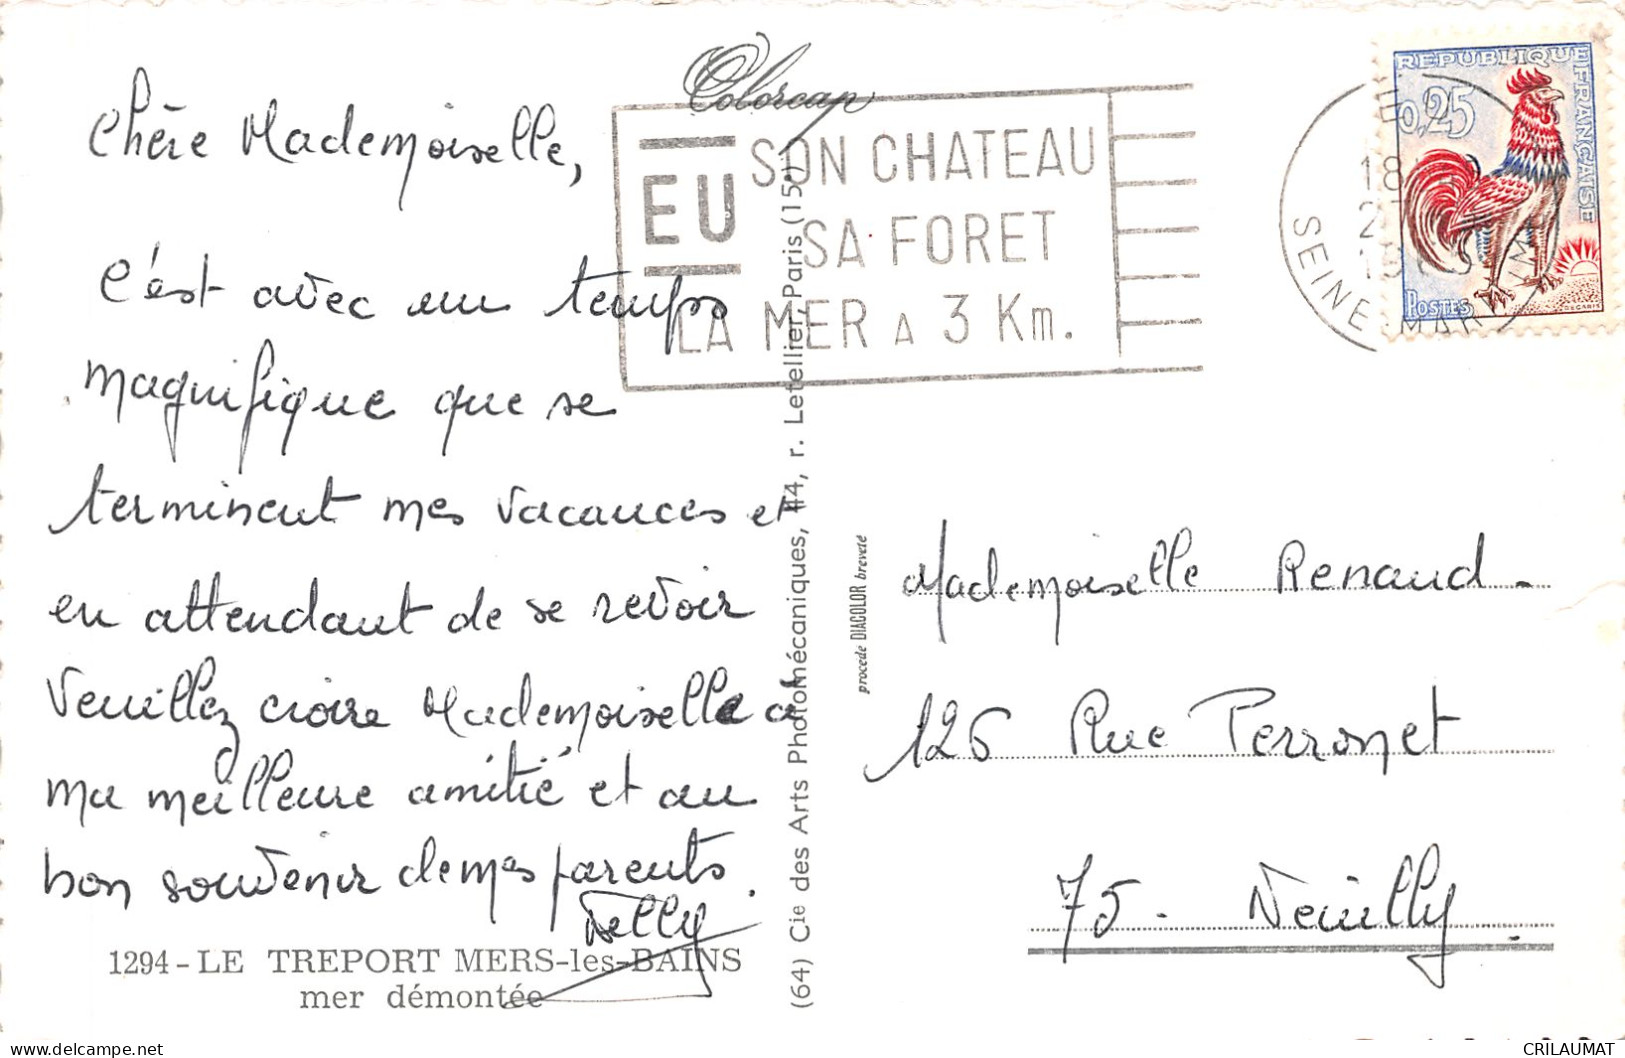 Colorcap
Chère Mademoiselle,
C'est avec un temps
magnifique que se
terminent mes vacances et
en attendant de se revoir
Veuillez croire Mademoiselle à
ma meilleure amitié et au
bon souvenir de mes parents.
1294 - LE TREPORT MERS-les-BAINS
mer démontée
EU SON CHATEAU
SA FORET
LA MER A 3 Km.
(64) Cie des Arts Photomécaniques, 44, r. Letellier, Paris (15e)
procédé DIACOLOR breveté
REPUBLIQUE FRANÇAISE
0,25
POSTES
18
SEINE MARITIME
Mademoiselle Renaud
126 Rue Perronet
75 - Neuilly.
CRILAUMAT
delcampe.net